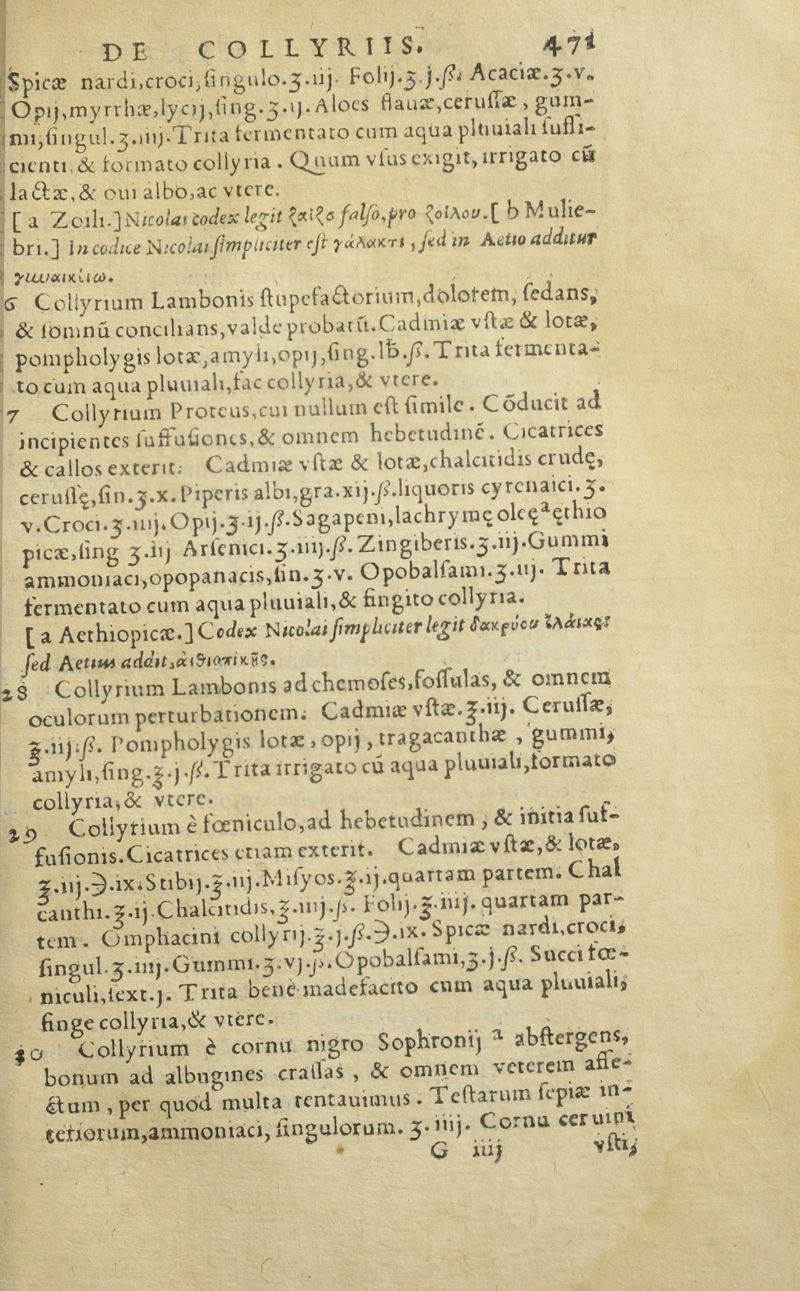 DE COLLYRIIS. 471
Spicæ nardi,croci,ſingulo.ʒ.iij. Folij.ʒ.j.ß. Acaciæ.ʒ.v.
Opij,myrrhæ,lycij,ſing.ʒ.ij. Aloes flauæ,ceruſſæ, gum-
mi,ſingul.ʒ.iiij.Trita fermentato cum aqua pluuiali ſuffi-
cienti, & formato collyria. Quum vſus exigit, irrigato cū
lactæ, & oui albo,ac vtere.
[ a Zoili.] Nicolai codex legit ζαίζο falſo, pro ζοίλου.[ b Mulie-
bri.] In codice Nicolai ſimpliciter eſt γάλακτι, ſed in Aetio additur
γυναικείῳ.
6 Collyrium Lambonis ſtupefactorium,dolorem, ſedans,
& ſomnū concilians,valde probatū.Cadmiæ vſtæ & lotæ,
pompholygis lotæ,amyli,opij,ſing.℔.ß.Trita fermenta-
to cum aqua pluuiali,fac collyria,& vtere.
7 Collyrium Proteus,cui nullum eſt ſimile. Cōducit ad
incipientes ſuffuſiones,& omnem hebetudinē. Cicatrices
& callos exterit: Cadmiæ vſtæ & lotæ,chalcitidis crudę,
ceruſſę,ſin.ʒ.x.Piperis albi,gra.xij.ß.liquoris cyrenaici.ʒ.
v.Croci.ʒ.iiij.Opij.ʒ.ij.ß.Sagapeni,lachrymę oleę ᵃ ęthio
picæ,ſing ʒ.iij Arſenici.ʒ.iiij.ß.Zingiberis.ʒ.iij.Gummi
ammoniaci,opopanacis,ſin.ʒ.v. Opobalſami.ʒ.iij. Trita
fermentato cum aqua pluuiali,& fingito collyria.
[ a Aethiopicæ.] Codex Nicolai ſimpliciter legit δακρύου ἐλαίας:
ſed Aetius addit,αἰθιοπικῆς.
28 Collyrium Lambonis ad chemoſes,foſſulas, & omnem
oculorum perturbationem. Cadmiæ vſtæ.℥.iij. Ceruſſæ,
℥.iij.ß. Pompholygis lotæ, opij, tragacanthæ, gummi,
amyli,ſing.℥.j.ß.Trita irrigato cū aqua pluuiali,formato
collyria,& vtere.
29 Collyrium è fœniculo,ad hebetudinem, & initia ſuf-
fuſionis.Cicatrices etiam exterit. Cadmiæ vſtæ,& lotæ,
℥.iij.℈.ix.Stibij.℥.iij.Miſyos.℥.ij.quartam partem. Chal
canthi.℥.ij.Chalcitidis,℥.iiij.ß. Folij.℥.iiij.quartam par-
tem. Omphacini collyrij.℥.j.ß.℈.ix.Spicæ nardi,croci,
ſingul.ʒ.iiij.Gummi.ʒ.vj.ß.Opobalſami,ʒ.j.ß. Succi fœ-
niculi,ſext.j. Trita bene madefacito cum aqua pluuiali,
finge collyria,& vtere.
30 Collyrium è cornu nigro Sophronij ᵃ abſtergens,
bonum ad albugines craſſas, & omnem veterem affe-
ctum, per quod multa tentauimus. Teſtarum ſepiæ in-
teriorum,ammoniaci, ſingulorum. ʒ.iiij. Cornu ceruini
G iiij vſti,